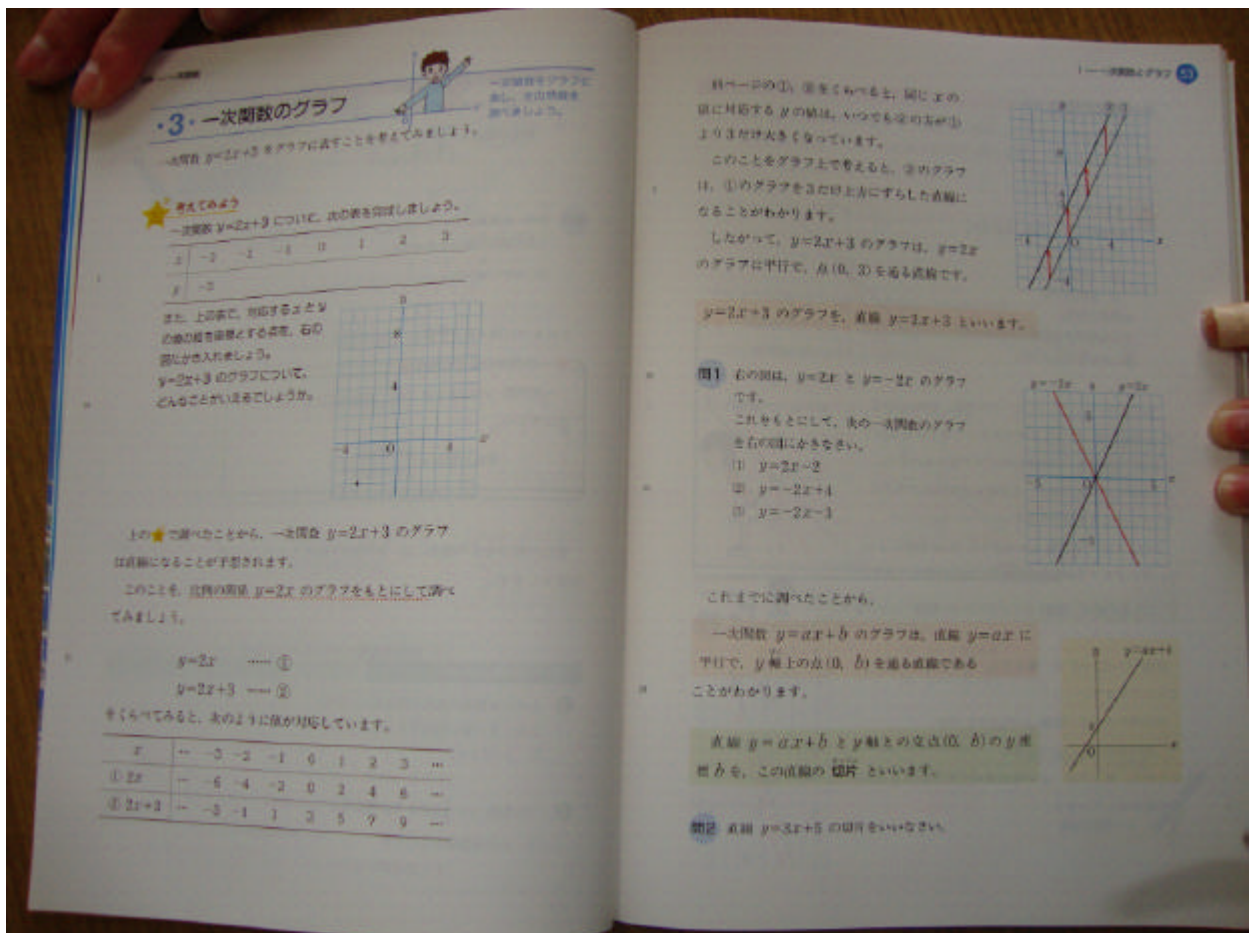 ·3· 一次関数のグラフ
一次関数をグラフに
表し、その特徴を
調べましょう。
一次関数 y=2x+3 をグラフに表すことを考えてみましょう。
考えてみよう
一次関数 y=2x+3 について、次の表を完成しましょう。
x -3 -2 -1 0 1 2 3
y -3
また、上の表で、対応する x と y
の値の組を座標とする点を、右の
図にかき入れましょう。
y=2x+3 のグラフについて、
どんなことがいえるでしょうか。
8
4
-4 O 4 x
上の で調べたことから、一次関数 y=2x+3 のグラフ
は直線になることが予想されます。
このことを、比例の関係 y=2x のグラフをもとにして調べ
てみましょう。
y=2x …… ①
y=2x+3 …… ②
をくらべてみると、次のように値が対応しています。
x … -3 -2 -1 0 1 2 3 …
① 2x … -6 -4 -2 0 2 4 6 …
② 2x+3 … -3 -1 1 3 5 7 9 …
1 一次関数とグラフ
前ページの①、②をくらべると、同じ x の
値に対応する y の値は、いつでも②の方が①
より3だけ大きくなっています。
このことをグラフ上で考えると、②のグラフ
は、①のグラフを3だけ上方にずらした直線に
なることがわかります。
したがって、y=2x+3 のグラフは、y=2x
のグラフに平行で、点(0, 3)を通る直線です。
-4 O 4 x
-4
y=2x+3 のグラフを、直線 y=2x+3 といいます。
問1 右の図は、y=2x と y=-2x のグラフ
です。
これをもとにして、次の一次関数のグラフ
を右の図にかきなさい。
(1) y=2x-2
(2) y=-2x+4
(3) y=-2x-3
y=-2x y y=2x
5
-5 O 5 x
-5
これまでに調べたことから、
一次関数 y=ax+b のグラフは、直線 y=ax に
平行で、y 軸上の点(0, b)を通る直線である
ことがわかります。
y y=ax+b
b
O x
直線 y=ax+b と y 軸との交点(0, b)の y 座
標 b を、この直線の 切片 といいます。
問2 直線 y=3x+5 の切片をいいなさい。